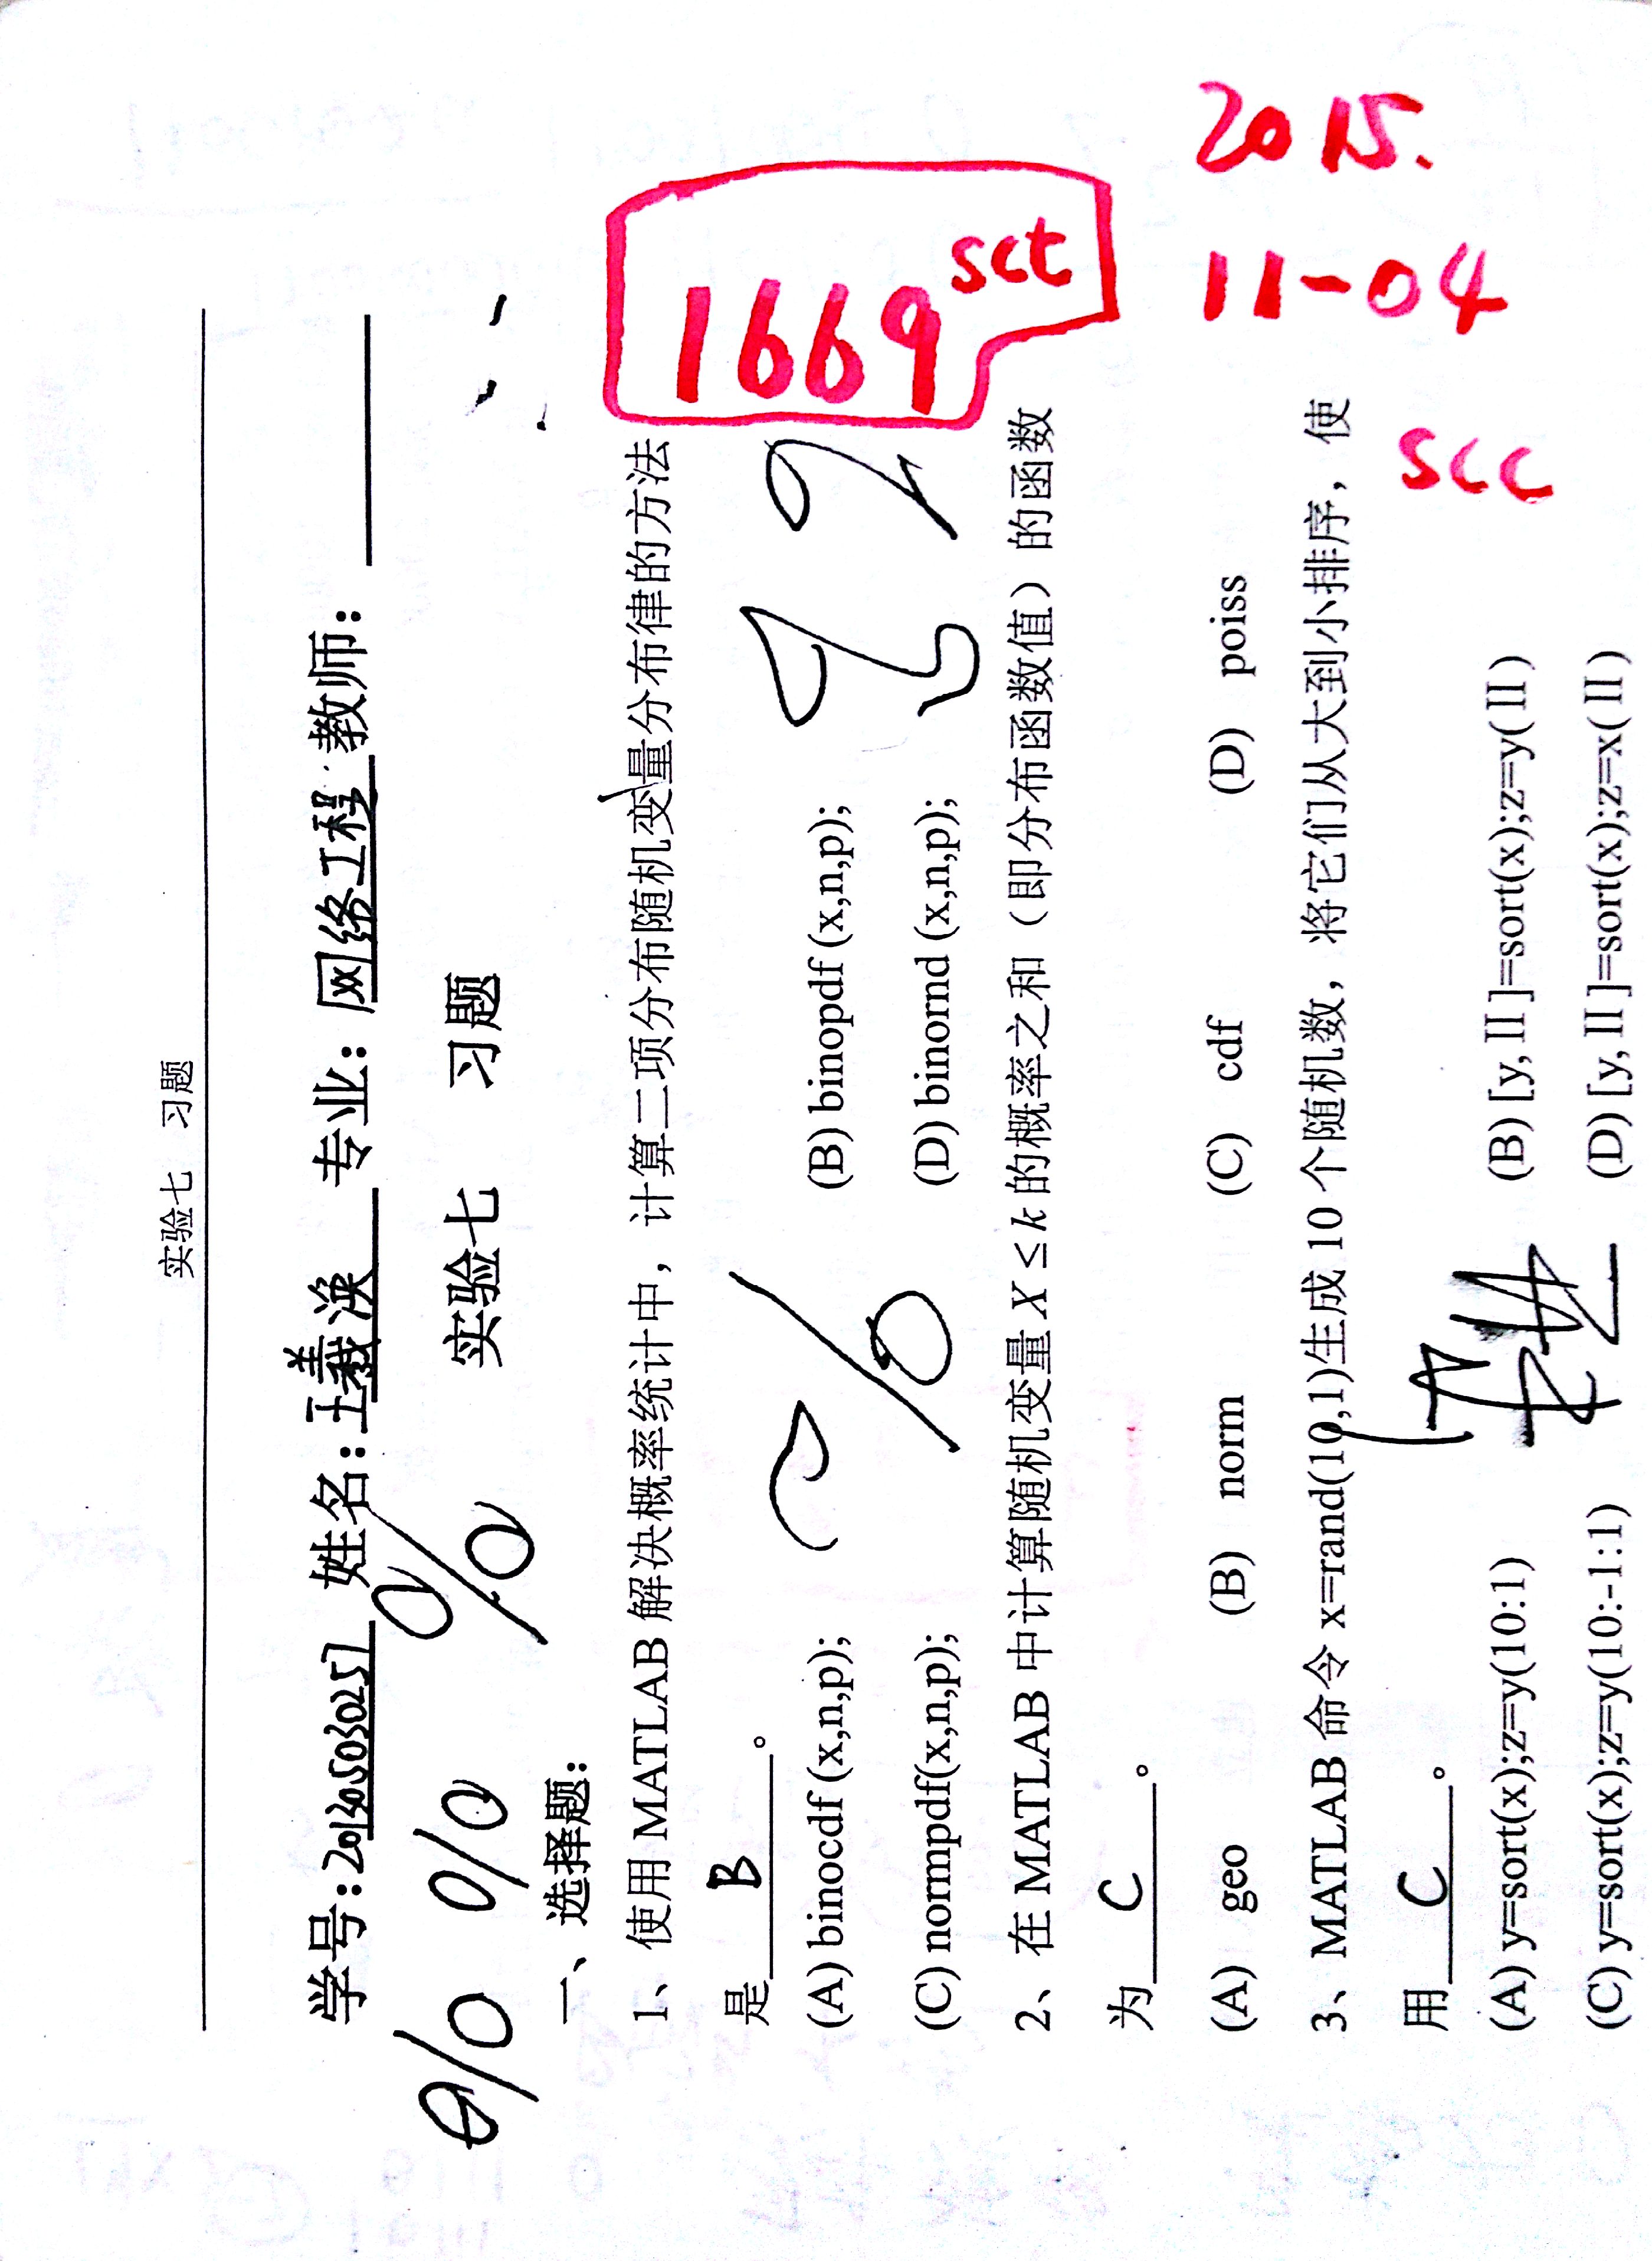 实验七 习题
学号:201305030251 姓名:王羲溟 专业:网络工程 教师:
实验七 习题
% % %
一、选择题:
1、使用 MATLAB 解决概率统计中,计算二项分布随机变量分布律的方法
是 B 。
(A) binocdf (x,n,p); (B) binopdf (x,n,p);
(C) normpdf(x,n,p); (D) binornd (x,n,p);
2、在 MATLAB 中计算随机变量 X ≤ k 的概率之和(即分布函数值)的函数
为 C 。
(A) geo (B) norm (C) cdf (D) poiss
3、MATLAB 命令 x=rand(10,1)生成 10 个随机数,将它们从大到小排序,使
用 C 。
(A) y=sort(x);z=y(10:1) (B) [y, II ]=sort(x);z=y( II )
(C) y=sort(x);z=y(10:-1:1) (D) [y, II ]=sort(x);z=x( II )
1669 sct
2015.
11-04
scc